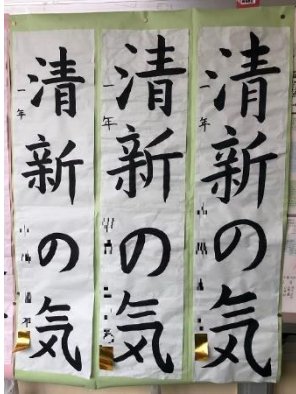 清新の気
一年
清新の気
一年
清新の気
一年